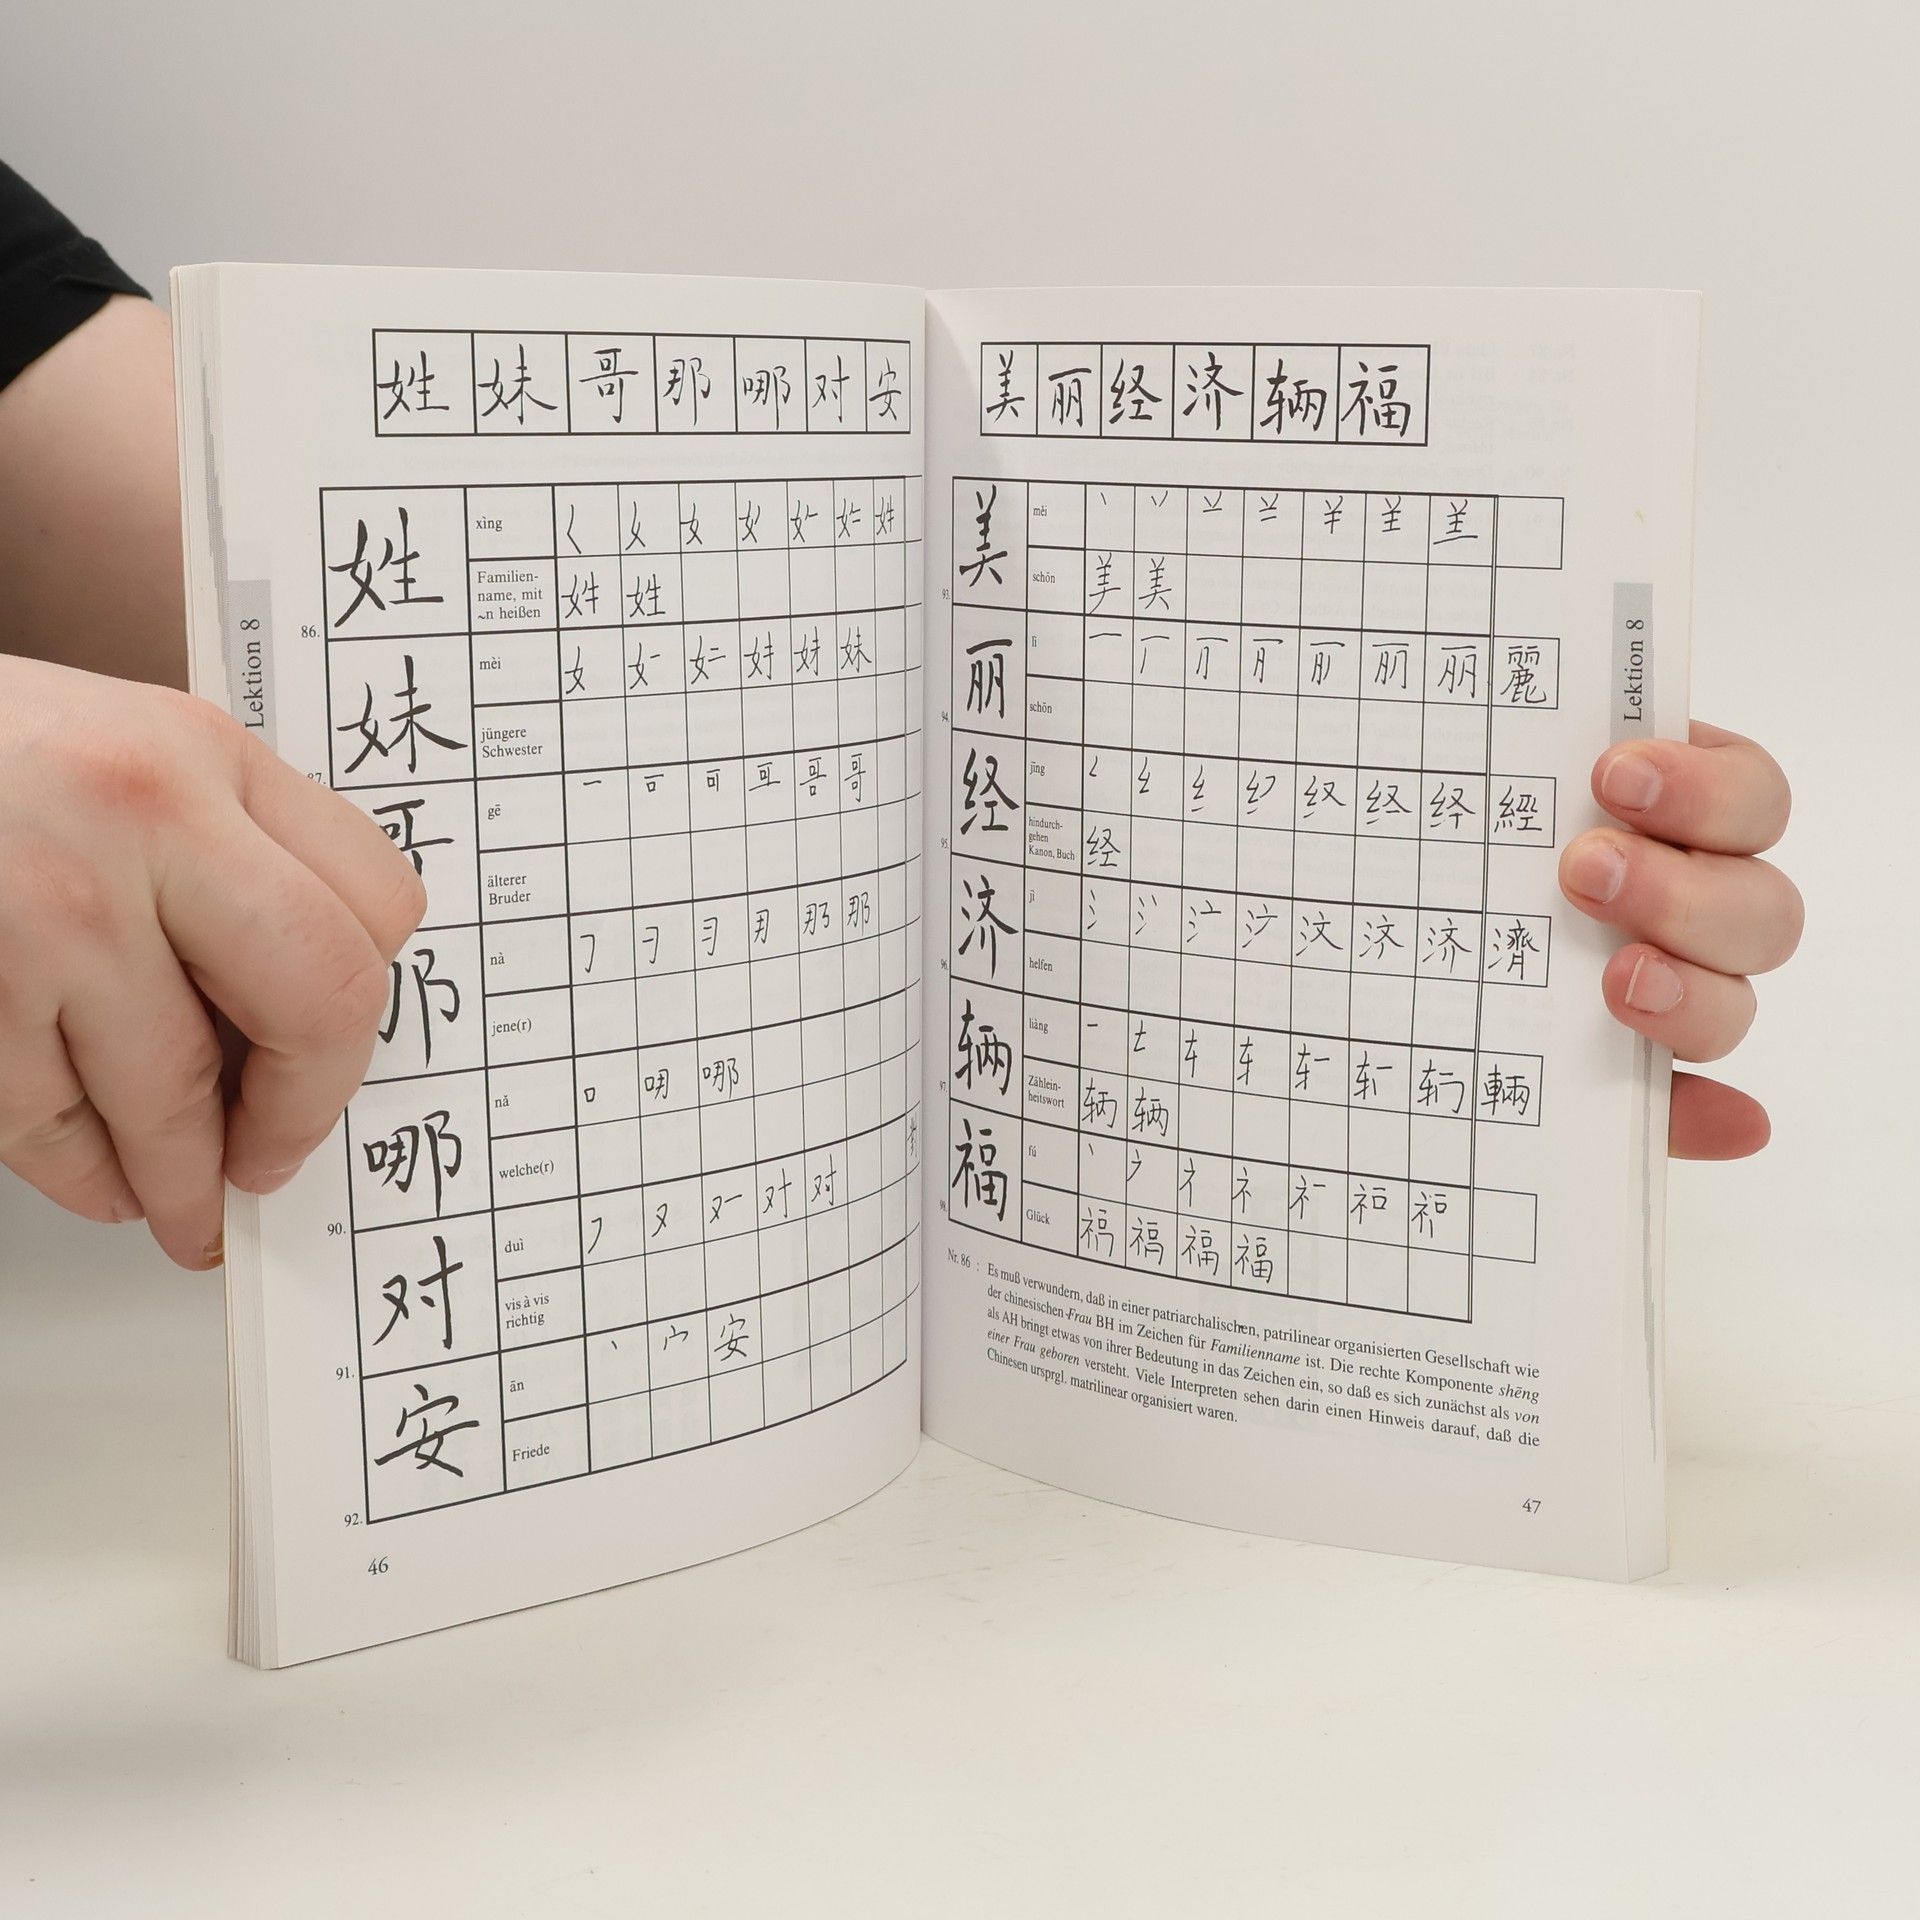 姓 妹 哥 那 哪 对 安
Lektion 8
姓 xìng 𡿨 女 女 姓
Familien-
name, mit
~n heißen
姓
86.
妹 mèi 女 妹
jüngere
Schwester
87.
哥 gē 一 可 哥
älterer
Bruder
那 nà 那
jene(r)
哪 nǎ 口 哪
welche(r)
90.
对 duì 又 对 對
vis à vis
richtig
91.
安 ān 丶 宀 安
Friede
92.
46
美 丽 经 济 辆 福
Lektion 8
美 měi 丶
schön
美
93.
丽 lì 一 丽 麗
schön
94.
经 jīng 经 經
hindurch-
gehen
Kanon, Buch
经
95.
济 jì 氵 济 濟
helfen
96.
辆 liàng 一 车 輛
Zählein-
heitswort
辆
97.
福 fú 丶 礻
Glück
福
98.
Nr. 86 : Es muß verwundern, daß in einer patriarchalischen, patrilinear organisierten Gesellschaft wie
der chinesischen Frau BH im Zeichen für Familienname ist. Die rechte Komponente shēng
als AH bringt etwas von ihrer Bedeutung in das Zeichen ein, so daß es sich zunächst als von
einer Frau geboren versteht. Viele Interpreten sehen darin einen Hinweis darauf, daß die
Chinesen ursprgl. matrilinear organisiert waren.
47